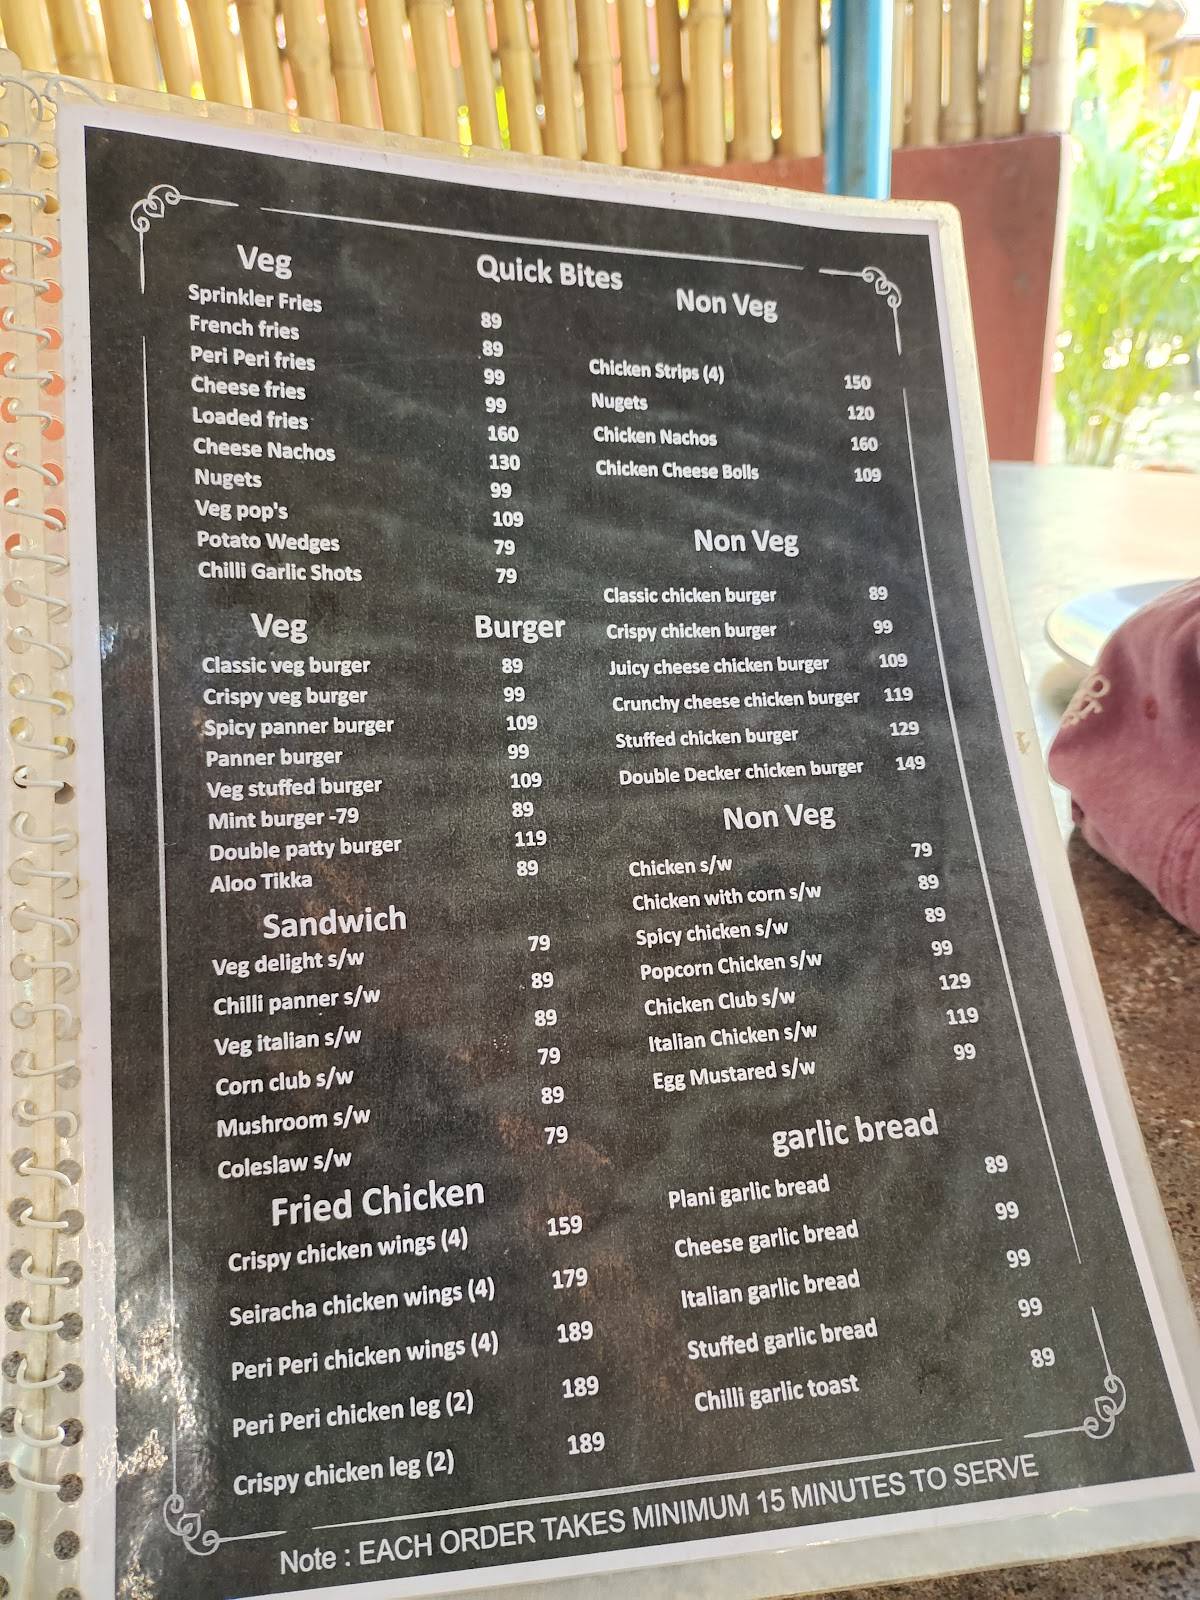 Veg
Quick Bites
Non Veg
Sprinkler Fries 89
French fries 89
Peri Peri fries 99
Cheese fries 99
Loaded fries 160
Cheese Nachos 130
Nugets 99
Veg pop's 109
Potato Wedges 79
Chilli Garlic Shots 79
Chicken Strips (4) 150
Nugets 120
Chicken Nachos 160
Chicken Cheese Bolls 109
Veg
Burger
Non Veg
Classic veg burger 89
Crispy veg burger 99
Spicy panner burger 109
Panner burger 99
Veg stuffed burger 109
Mint burger -79 89
Double patty burger 119
Aloo Tikka 89
Classic chicken burger 89
Crispy chicken burger 99
Juicy cheese chicken burger 109
Crunchy cheese chicken burger 119
Stuffed chicken burger 129
Double Decker chicken burger 149
Sandwich
Veg delight s/w 79
Chilli panner s/w 89
Veg italian s/w 89
Corn club s/w 79
Mushroom s/w 89
Coleslaw s/w 79
Non Veg
Chicken s/w 79
Chicken with corn s/w 89
Spicy chicken s/w 89
Popcorn Chicken s/w 99
Chicken Club s/w 129
Italian Chicken s/w 119
Egg Mustared s/w 99
Fried Chicken
Crispy chicken wings (4) 159
Seiracha chicken wings (4) 179
Peri Peri chicken wings (4) 189
Peri Peri chicken leg (2) 189
Crispy chicken leg (2) 189
garlic bread
Plani garlic bread 89
Cheese garlic bread 99
Italian garlic bread 99
Stuffed garlic bread 99
Chilli garlic toast 89
Note : EACH ORDER TAKES MINIMUM 15 MINUTES TO SERVE